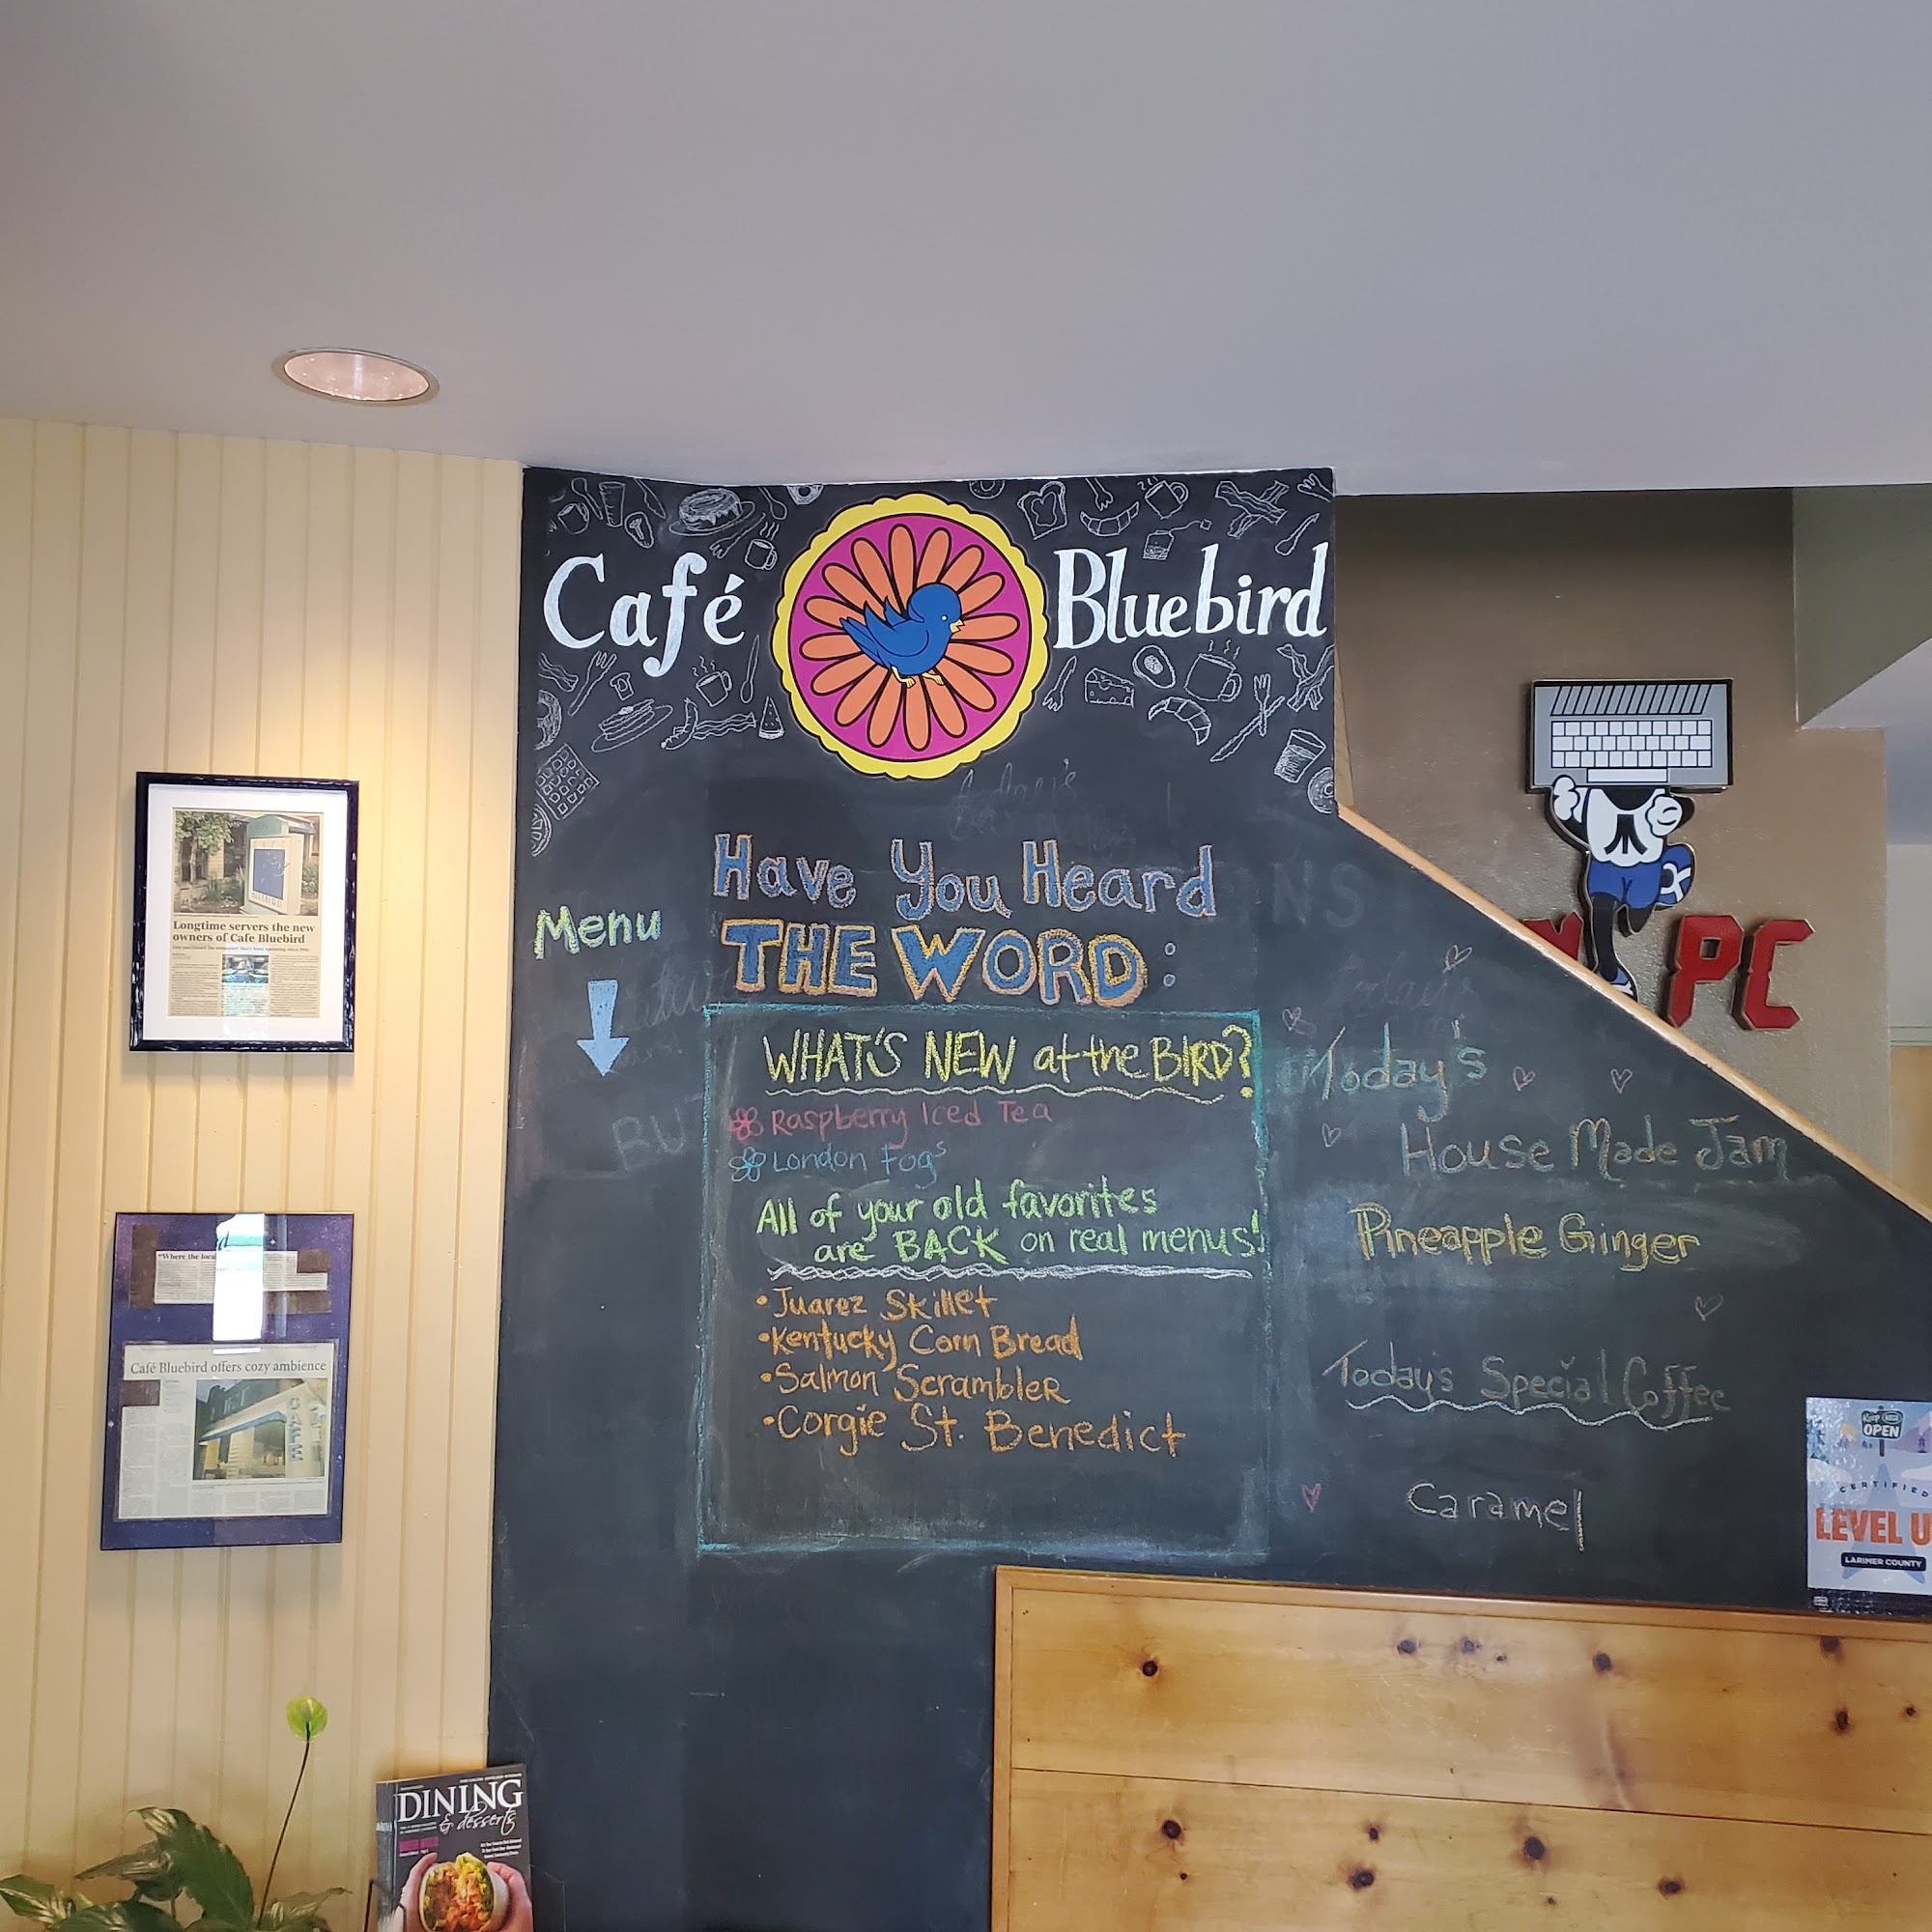 Café Bluebird
Have You Heard
THE WORD:
Menu
WHAT'S NEW at the BIRD?
Raspberry Iced Tea
London Fogs
All of your old favorites
are BACK on real menus!
• Juarez Skillet
• Kentucky Corn Bread
• Salmon Scrambler
• Corgie St. Benedict
Today's
House Made Jam
Pineapple Ginger
Today's Special Coffee
Caramel
PC
Longtime servers the new
owners of Cafe Bluebird
"Where the local
Café Bluebird offers cozy ambience
CAFE
DINING
& desserts
Keep
OPEN
CERTIFIED
LEVEL U
LARIMER COUNTY